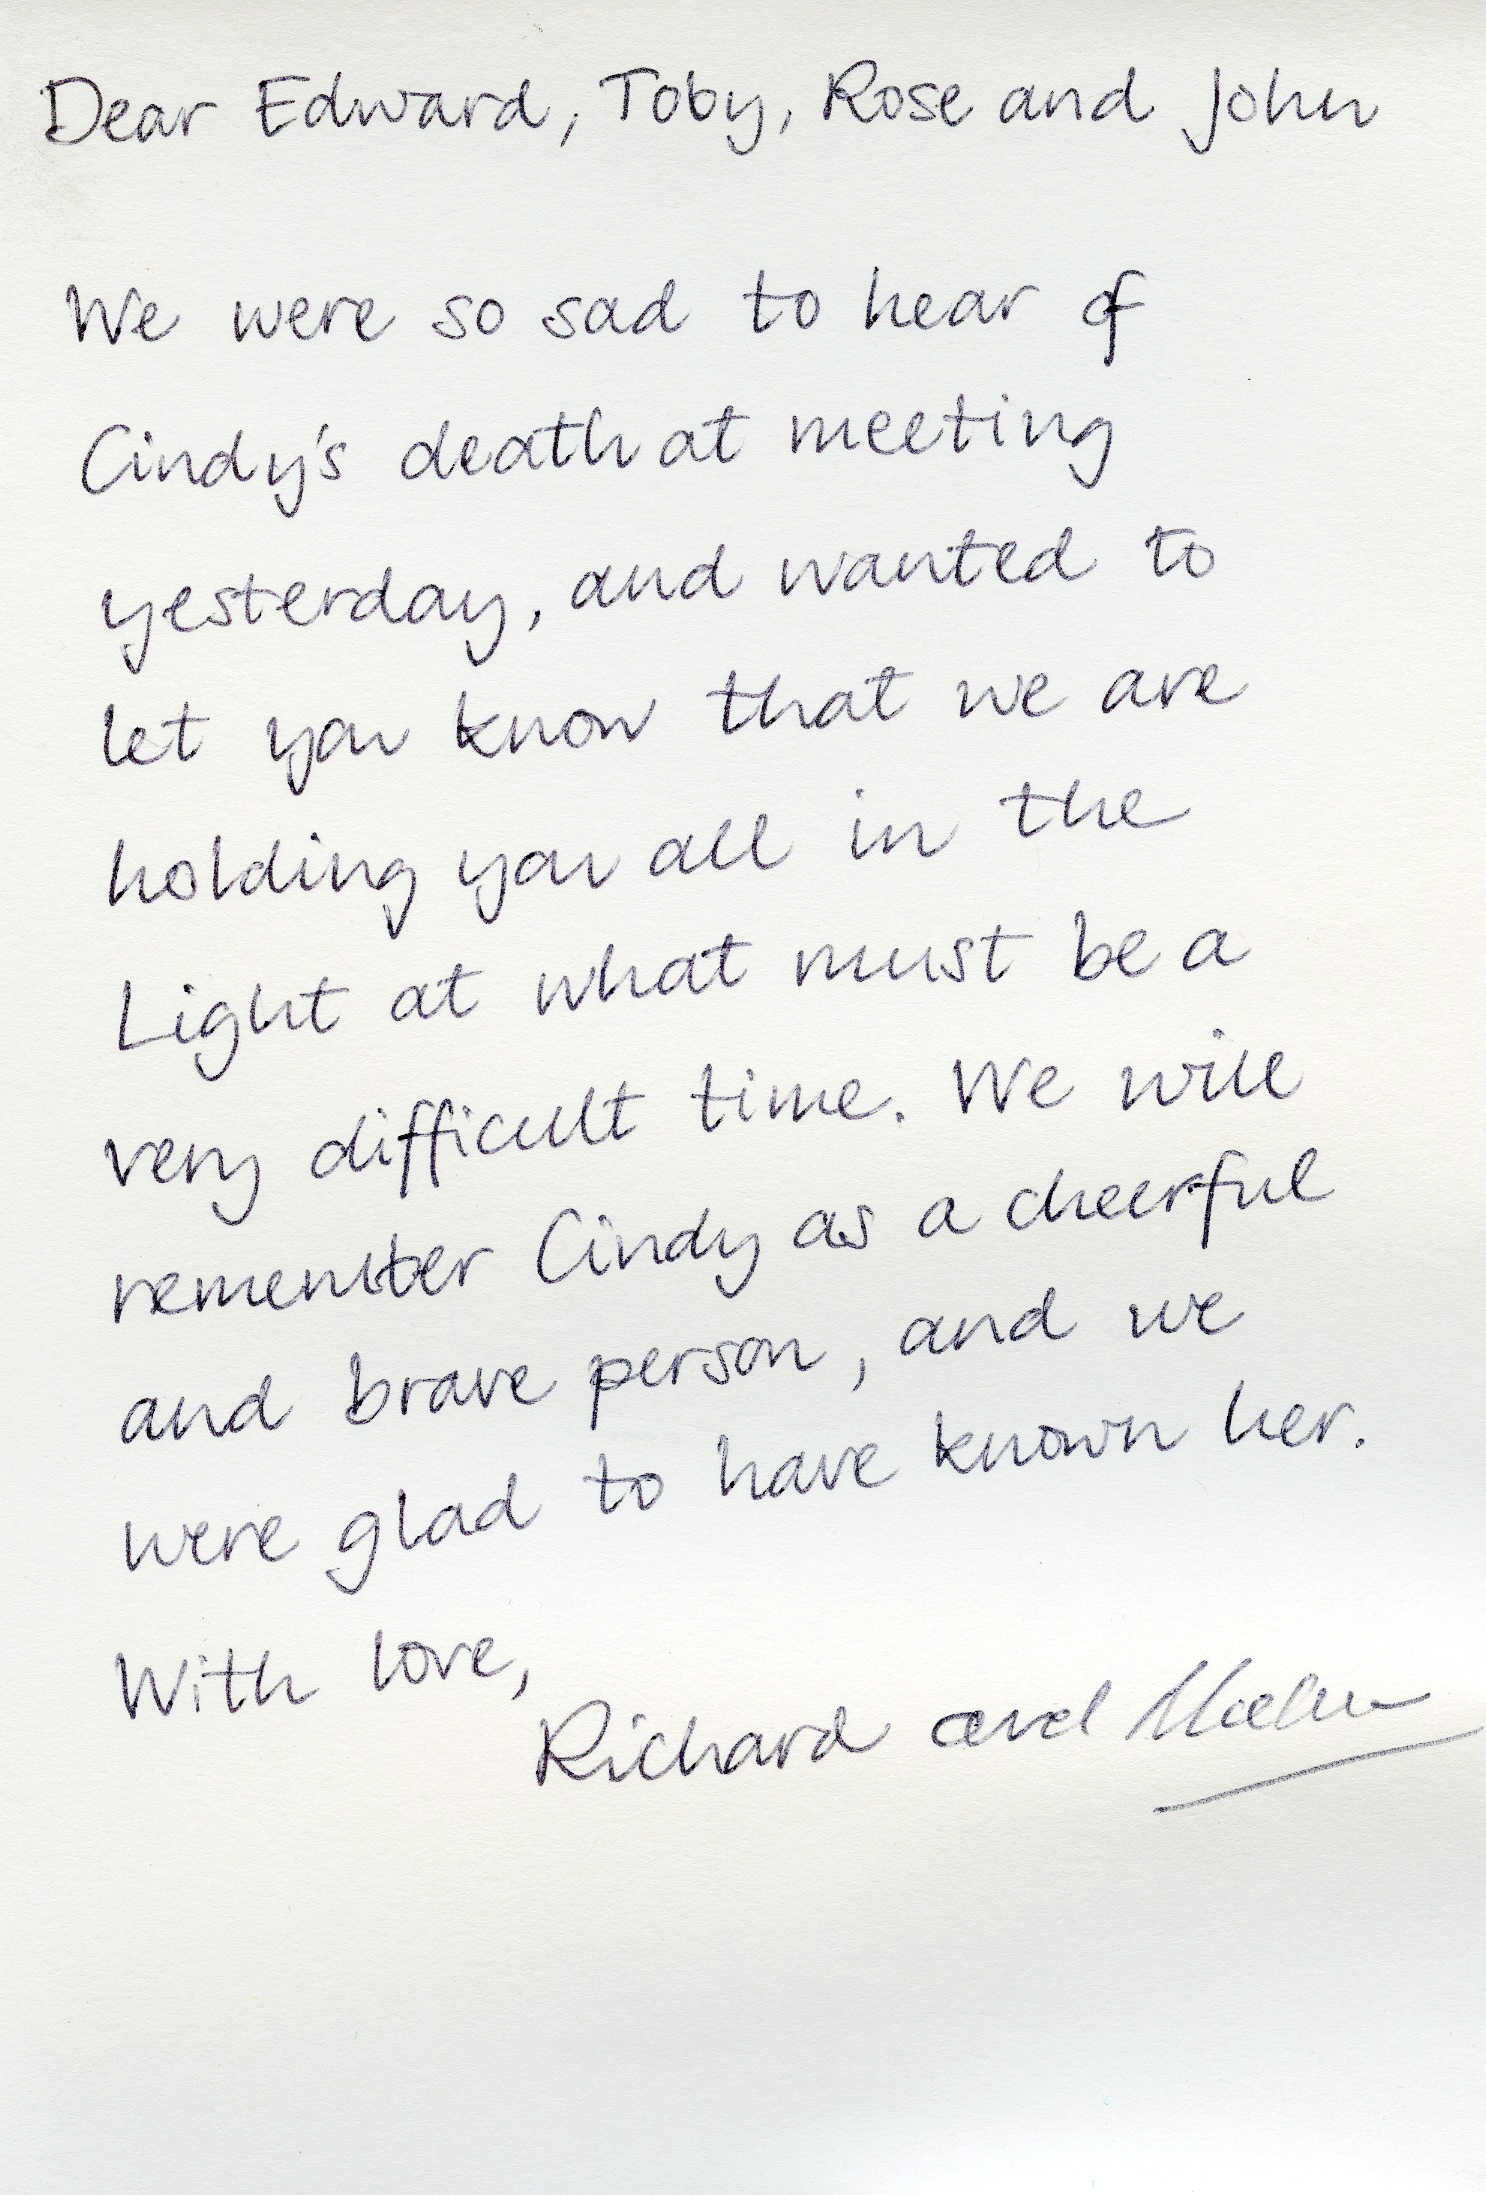 Dear Edward, Toby, Rose and John
We were so sad to hear of
Cindy's death at meeting
yesterday, and wanted to
let you know that we are
holding you all in the
Light at what must be a
very difficult time. We will
remember Cindy as a cheerful
and brave person, and we
were glad to have known her.
With love,
Richard and